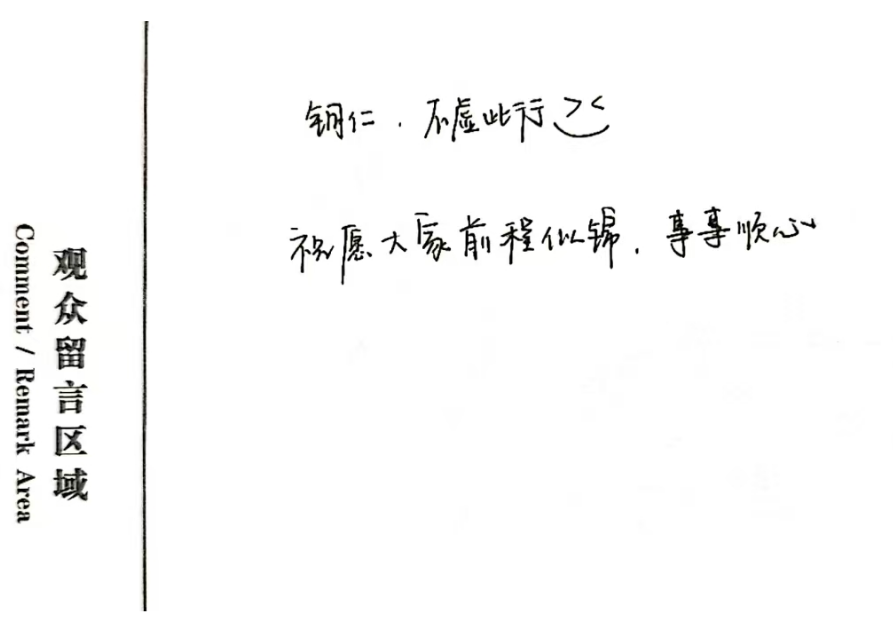 铜仁,不虚此行
祝愿大家前程似锦,事事顺心
观众留言区域
Comment / Remark Area